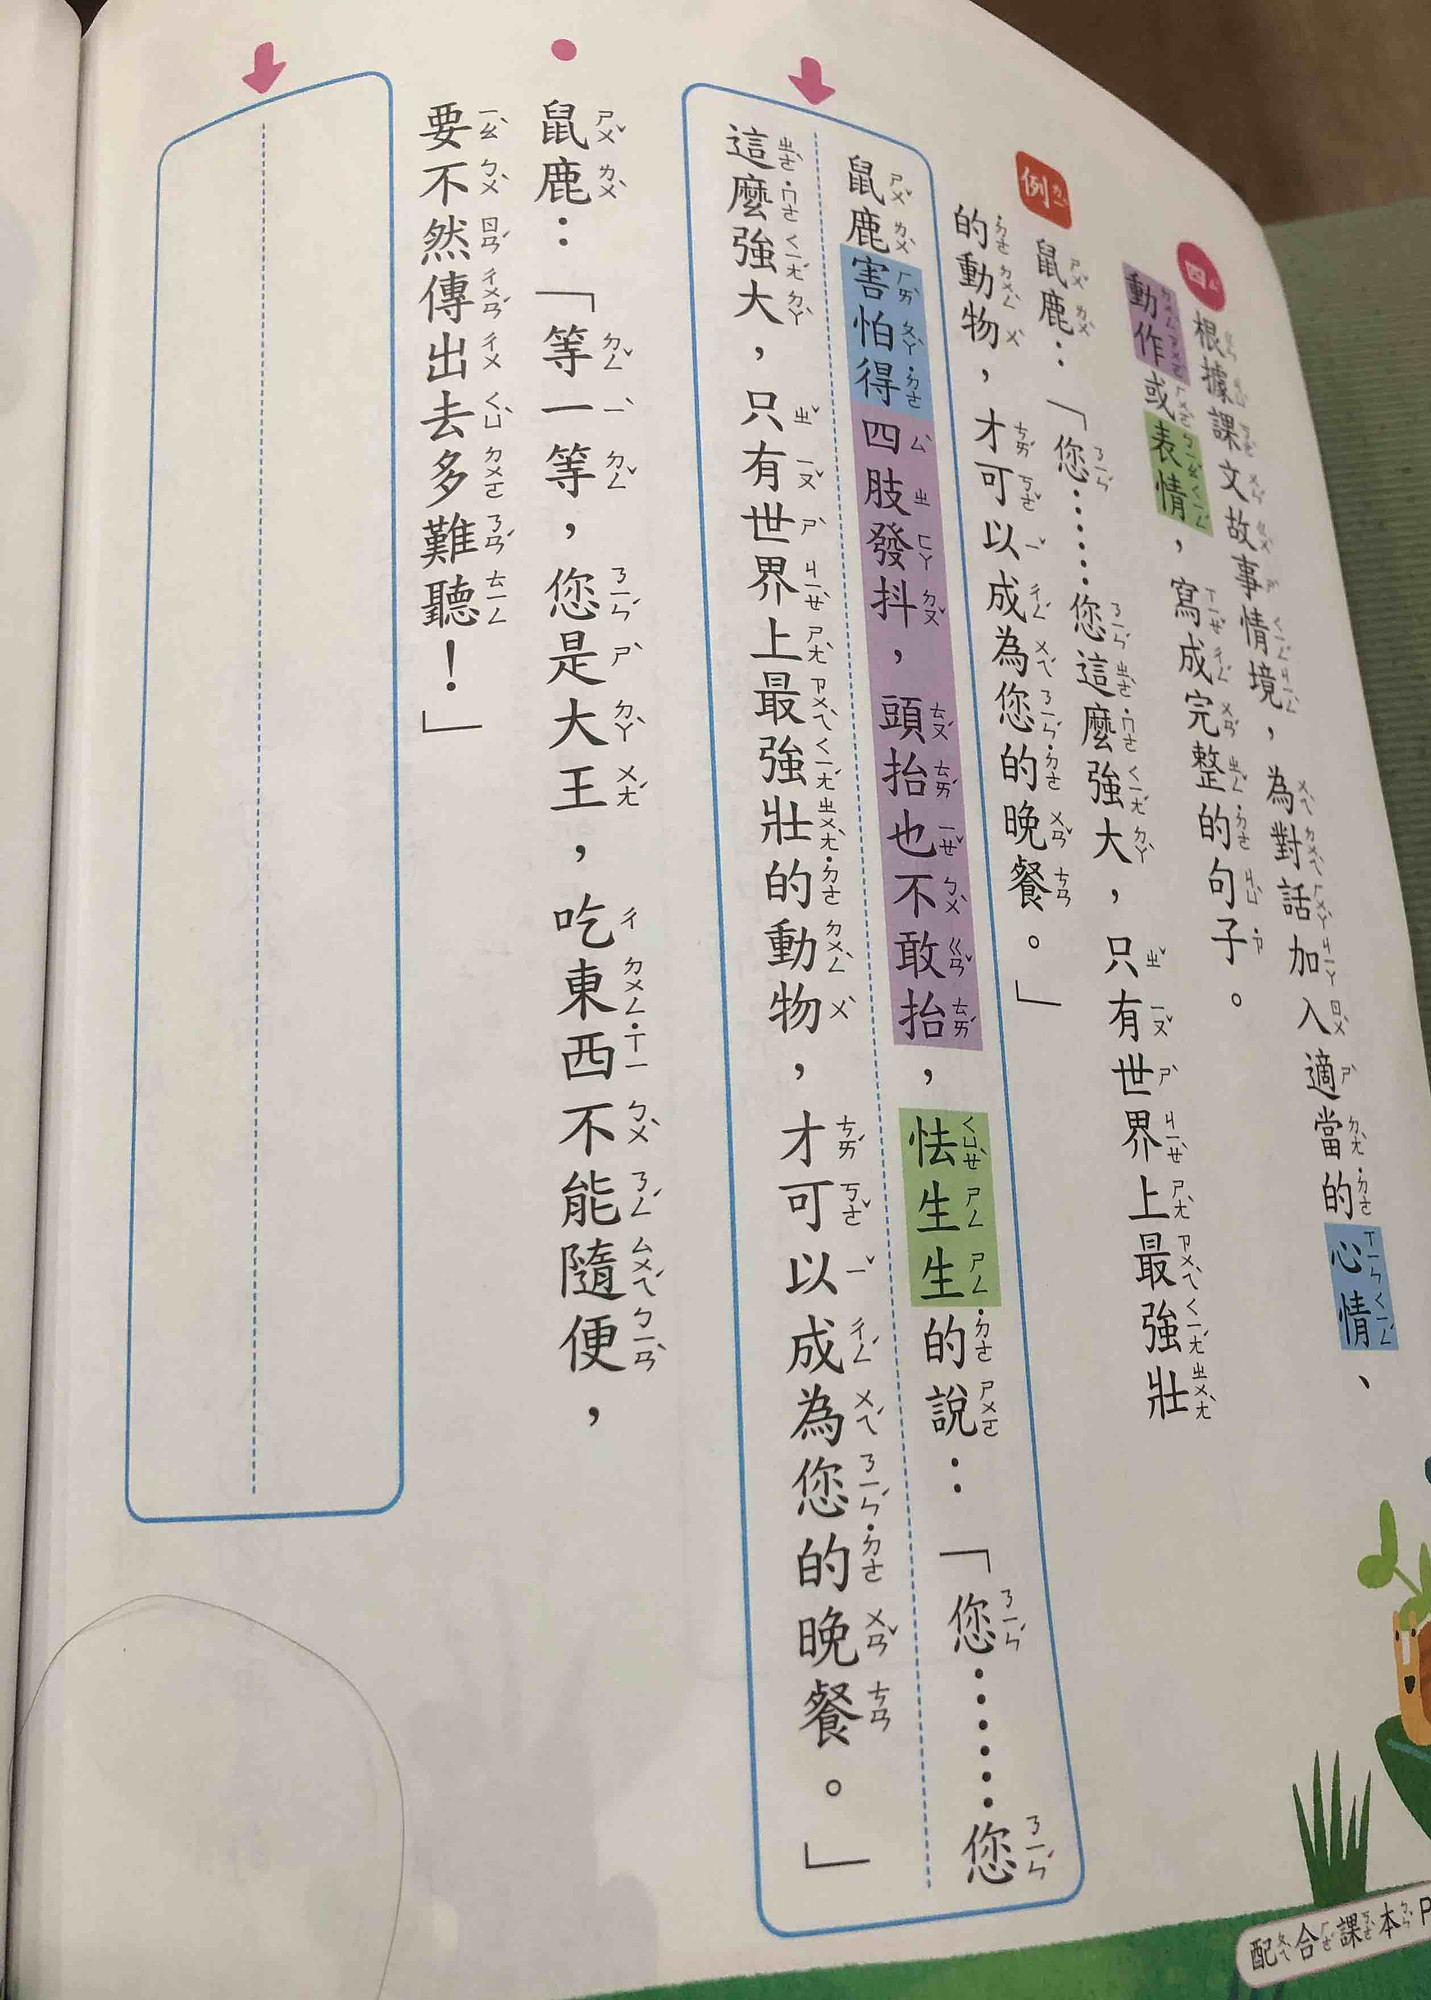 四 根據課文故事情境，為對話加入適當的心情、
動作或表情，寫成完整的句子。
例 鼠鹿：「您……您這麼強大，只有世界上最強壯
的動物，才可以成為您的晚餐。」
鼠鹿害怕得四肢發抖，頭抬也不敢抬，怯生生的說：「您……您
這麼強大，只有世界上最強壯的動物，才可以成為您的晚餐。」
鼠鹿：「等一等，您是大王，吃東西不能隨便，
要不然傳出去多難聽！」
配合課本P